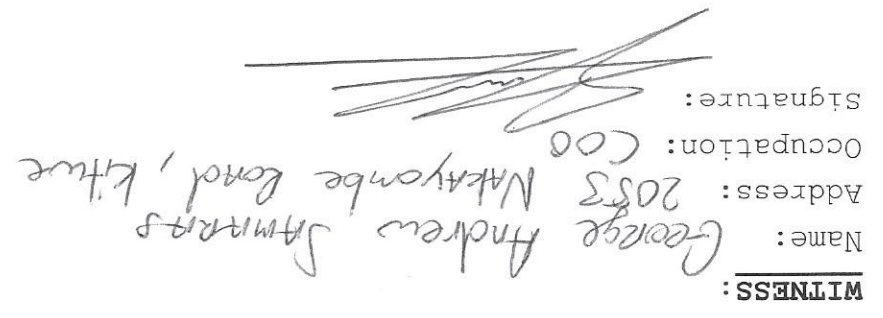 WITNESS:
Name: George Andrew SAMARAS
Address: 2053 NAKAYOMBE Road, Kitwe
Occupation: COO
Signature: